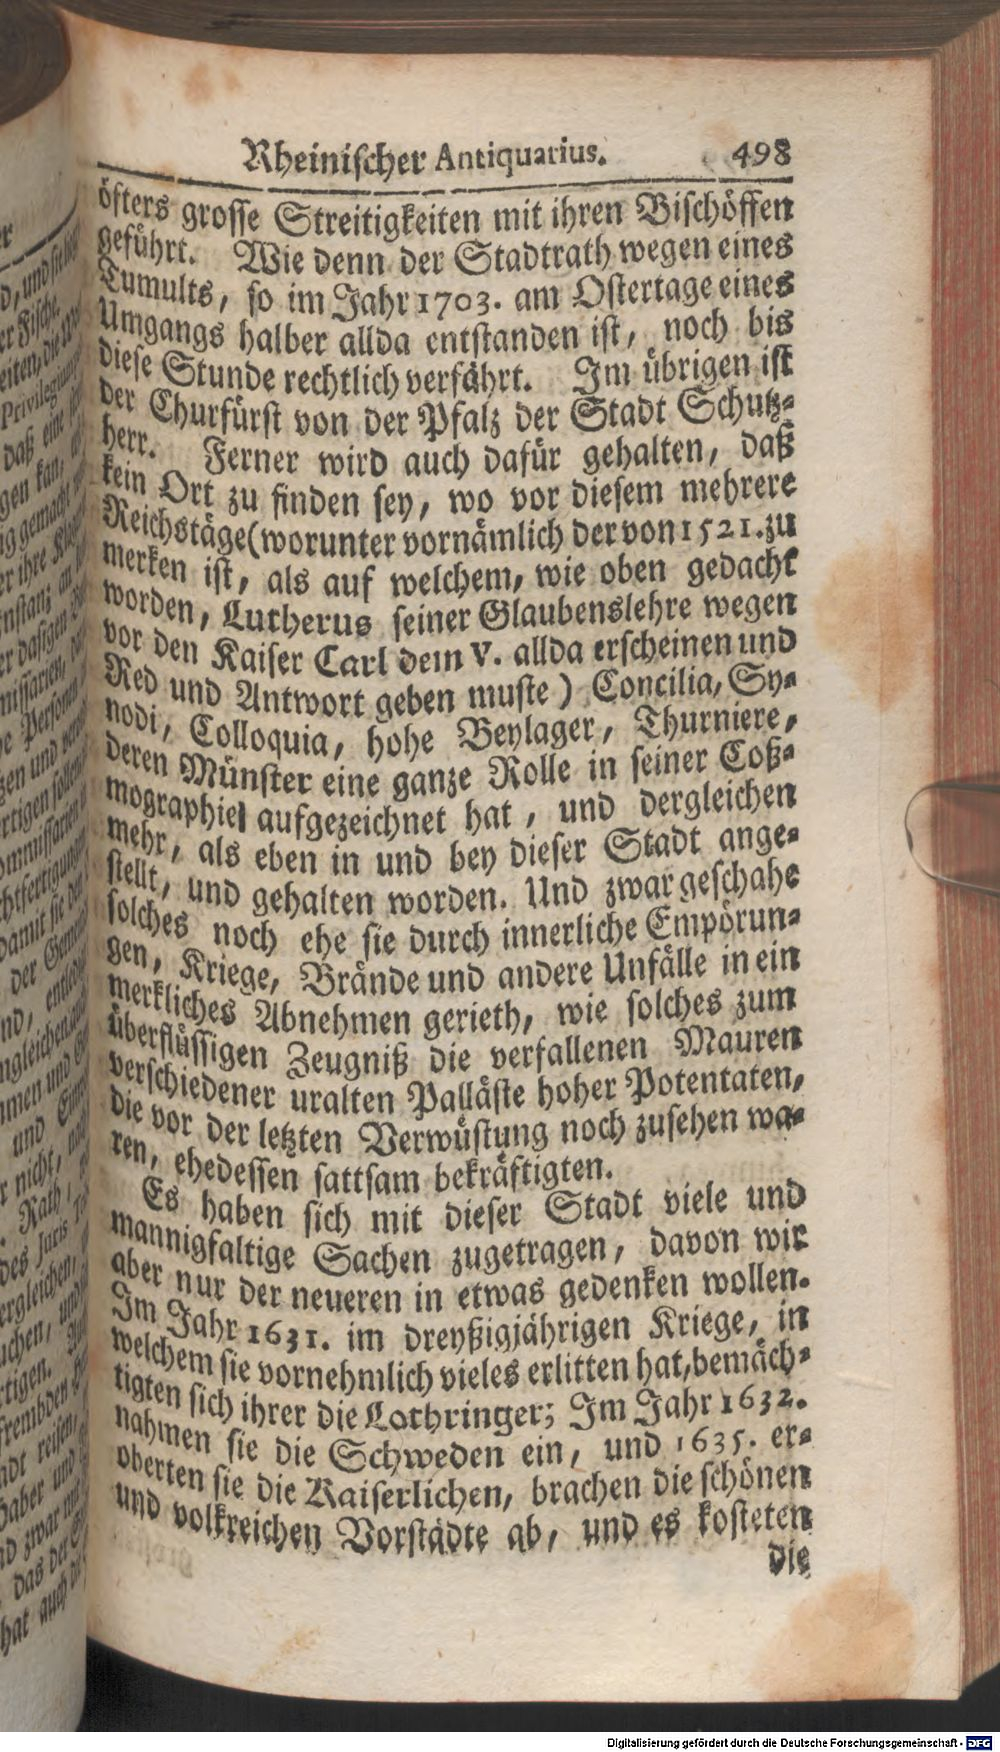 Rheinischer Antiquarius. 498
öfters grosse Streitigkeiten mit ihren Bischöffen
geführt. Wie denn der Stadtrath wegen eines
Tumults, so im Jahr 1703. am Ostertage eines
Umgangs halber allda entstanden ist, noch bis
diese Stunde rechtlich verfährt. Im übrigen ist
der Churfürst von der Pfalz der Stadt Schutz-
herr. Ferner wird auch dafür gehalten, daß
kein Ort zu finden sey, wo vor diesem mehrere
Reichstäge (worunter vornämlich der von 1521. zu
merken ist, als auf welchem, wie oben gedacht
worden, Lutherus seiner Glaubenslehre wegen
vor den Kaiser Carl dem V. allda erscheinen und
Red und Antwort geben muste) Concilia, Sy-
nodi, Colloquia, hohe Beylager, Thurniere,
deren Münster eine ganze Rolle in seiner Coß-
mographie aufgezeichnet hat, und dergleichen
mehr, als eben in und bey dieser Stadt ange-
stellt, und gehalten worden. Und zwar geschahe
solches noch ehe sie durch innerliche Empörun-
gen, Kriege, Brände und andere Unfälle in ein
merkliches Abnehmen gerieth, wie solches zum
überflüssigen Zeugniß die verfallenen Mauren
verschiedener uralten Palläste hoher Potentaten,
die vor der letzten Verwüstung noch zusehen wa-
ren, ehedessen sattsam bekräftigten.
Es haben sich mit dieser Stadt viele und
mannigfaltige Sachen zugetragen, davon wir
aber nur der neueren in etwas gedenken wollen.
Im Jahr 1631. im dreyßigjährigen Kriege, in
welchem sie vornehmlich vieles erlitten hat, bemäch-
tigten sich ihrer die Lothringer; Im Jahr 1632.
nahmen sie die Schweden ein, und 1635. er-
oberten sie die Kaiserlichen, brachen die schönen
und volkreichen Vorstädte ab, und es kosteten
die
Digitalisierung gefördert durch die Deutsche Forschungsgemeinschaft - DFG